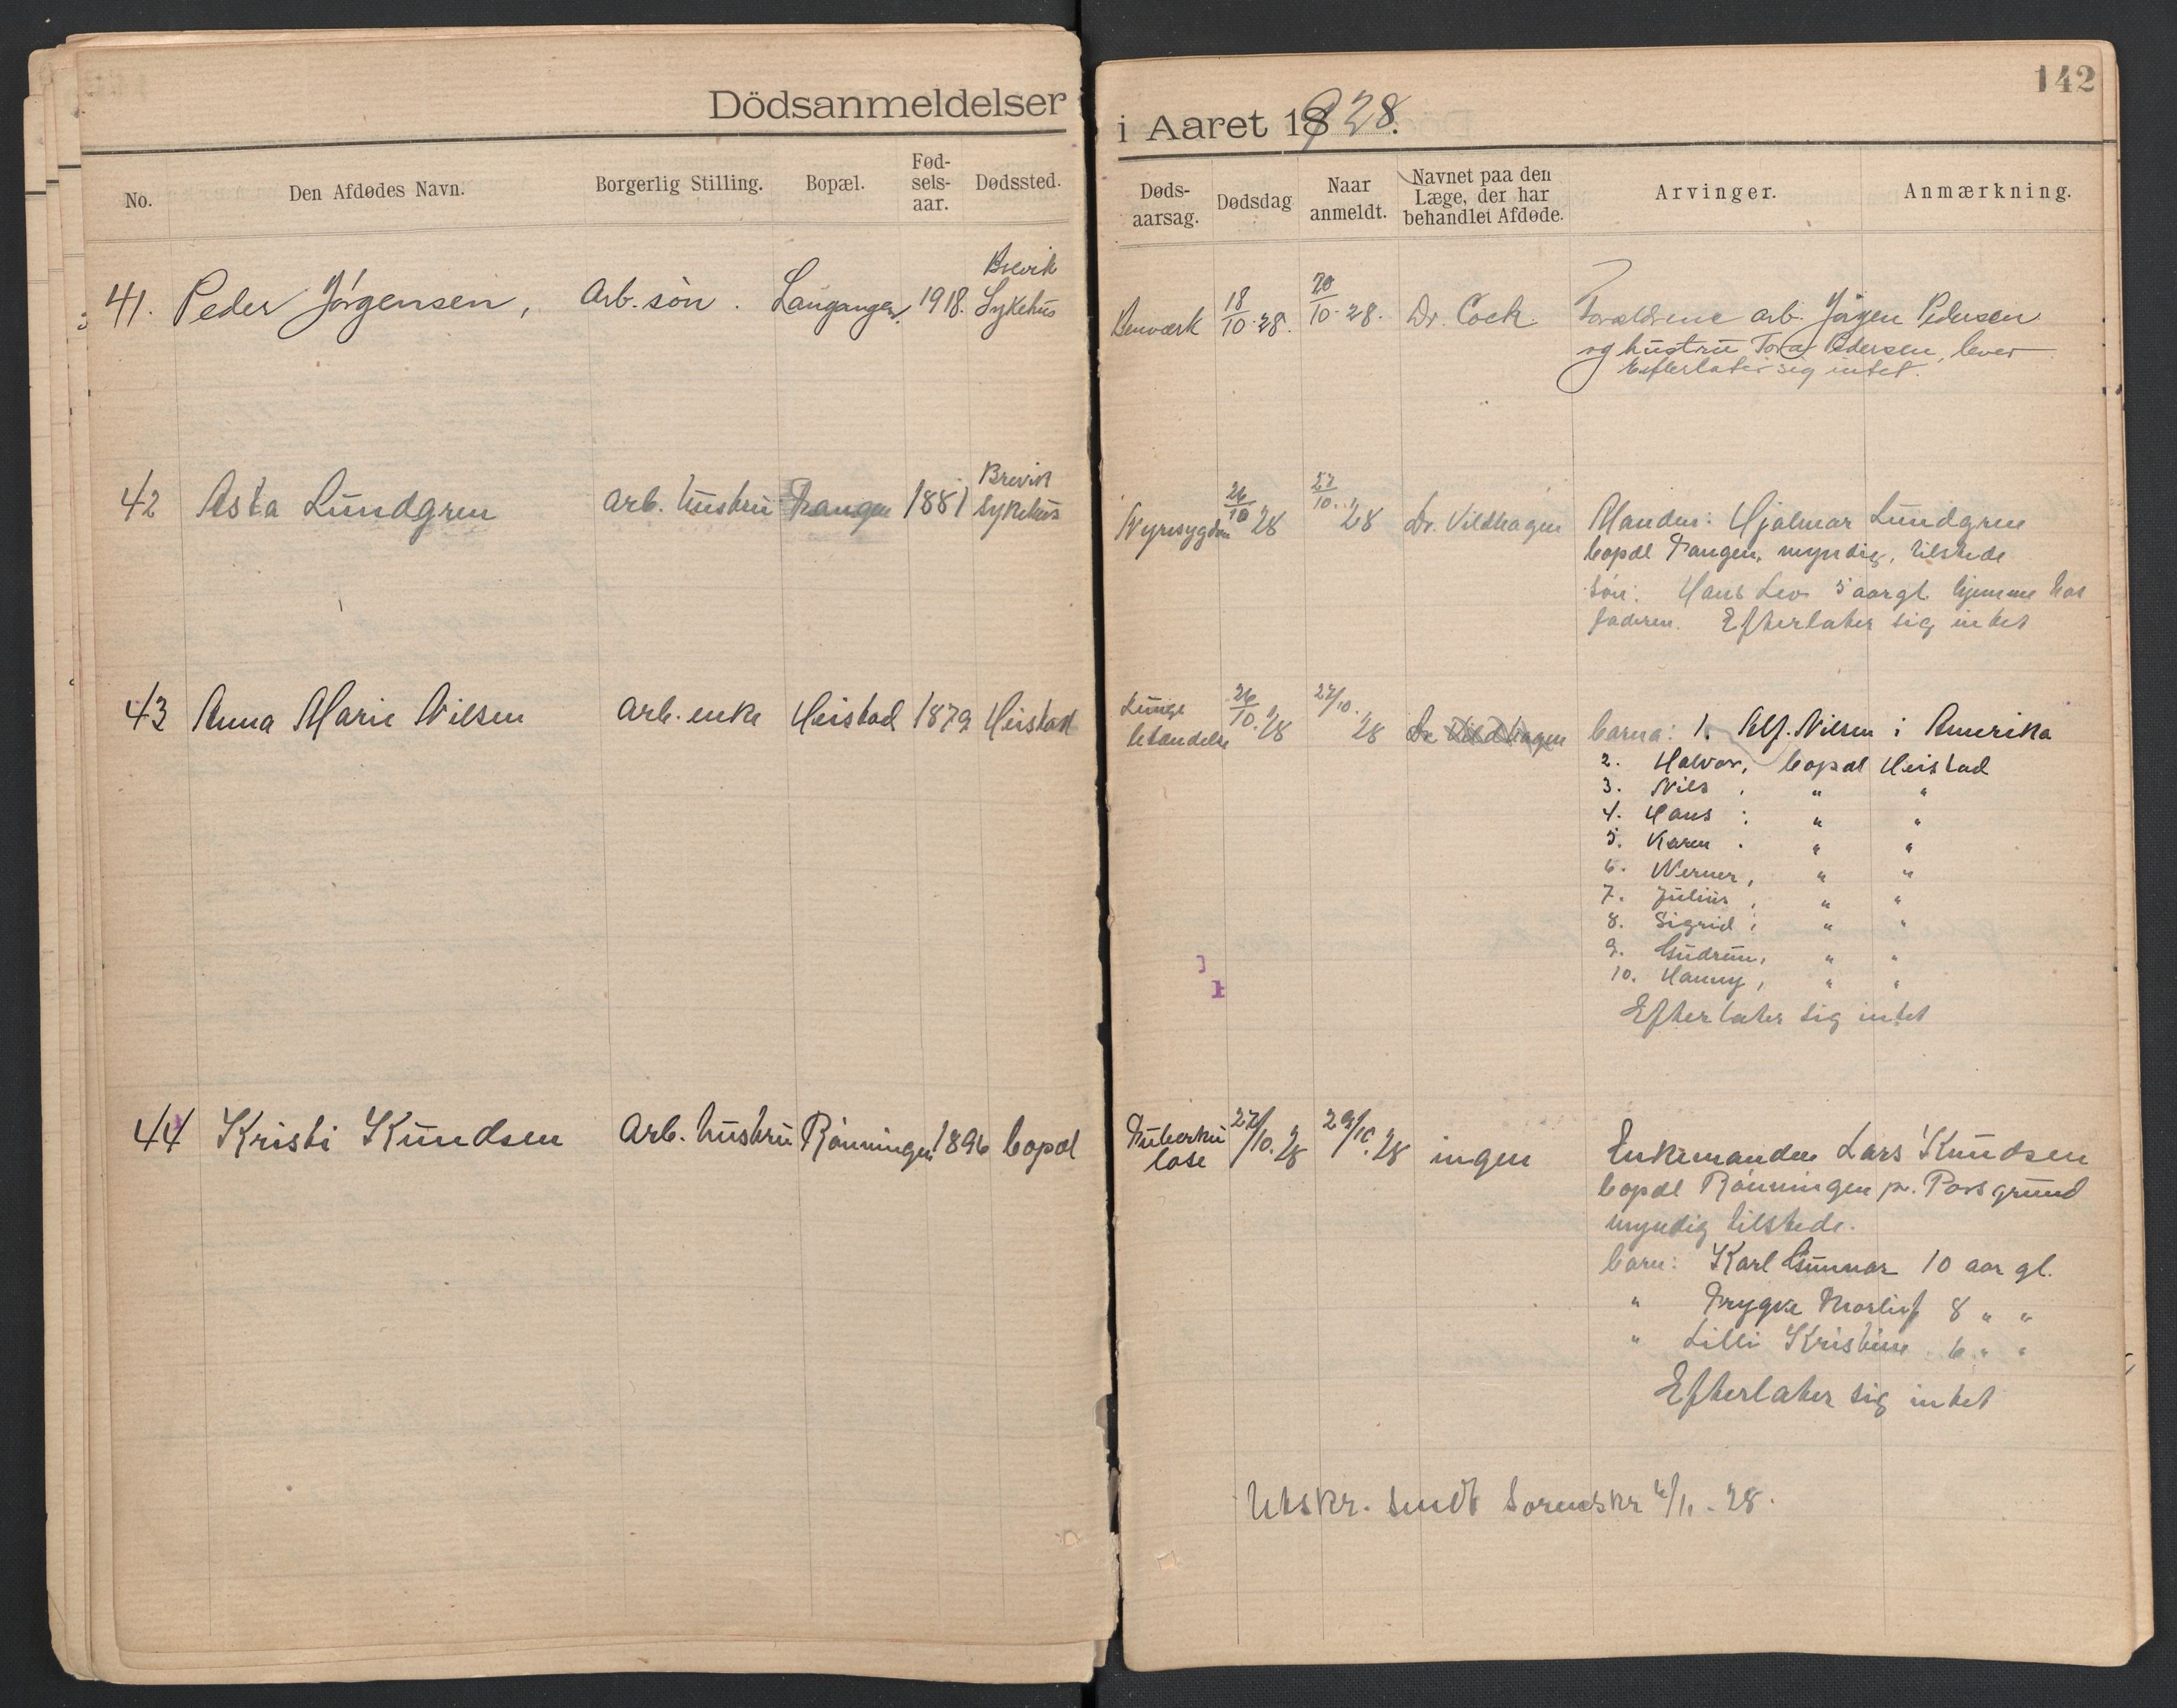 142
Dödsanmeldelser i Aaret 1928.
No. Den Afdødes Navn. Borgerlig Stilling. Bopæl. Fød-sels-aar. Dødssted. Døds-aarsag. Dødsdag Naar anmeldt. Navnet paa den Læge, der har behandlet Afdøde. Arvinger. Anmærkning.
41. Peder Jörgensen, Arb. sön. Langangen. 1918. Brevik Sykehus Benværk 18/10.28. 20/10.28. Dr. Cock. Forældrene arb. Jörgen Pedersen
og hustru Tora Pedersen, lever
Efterlater sig intet.
42 Asta Lundgren arb. hustru Tangen 1881 Brevik sykehus Nyresygdom 26/10 28 27/10. 28 Dr. Vildhagen Manden: Hjalmar Lundgren
bopæl Tangen, myndig, tilstede
sön: Hans Leo 5 aar gl. hjemme hos
faderen. Efterlater sig intet
43 Anna Marie Nilsen Arb. enke Heistad 1879 Heistad Lunge betændelse 26/10.28 27/10. 28 Dr Vildhagen barna: 1. Alf. Nilsen i Amerika
2. Halvor, bopæl Heistad
3. Nils , " "
4. Hans : " "
5. Karen . " "
6. Werner, " "
7. Julius , " "
8. Sigrid : " "
9. Gudrun, " "
10. Hanny, " "
Efterlater sig intet
44 Kristi Knudsen Arb. hustru Rönningen 1896 bopæl Tuberku lose 27/10.28 29/10.28 ingen Enkemanden Lars Knudsen
bopæl Rönningen pr. Porsgrund
myndig tilstede.
barn: Karl Gunnar 10 aar gl.
" Trygve Thorleif 8 " "
" Lilli Kristine 6 " "
Efterlater sig intet
Utskr. sendt Sorenskr 6/11 - 28.